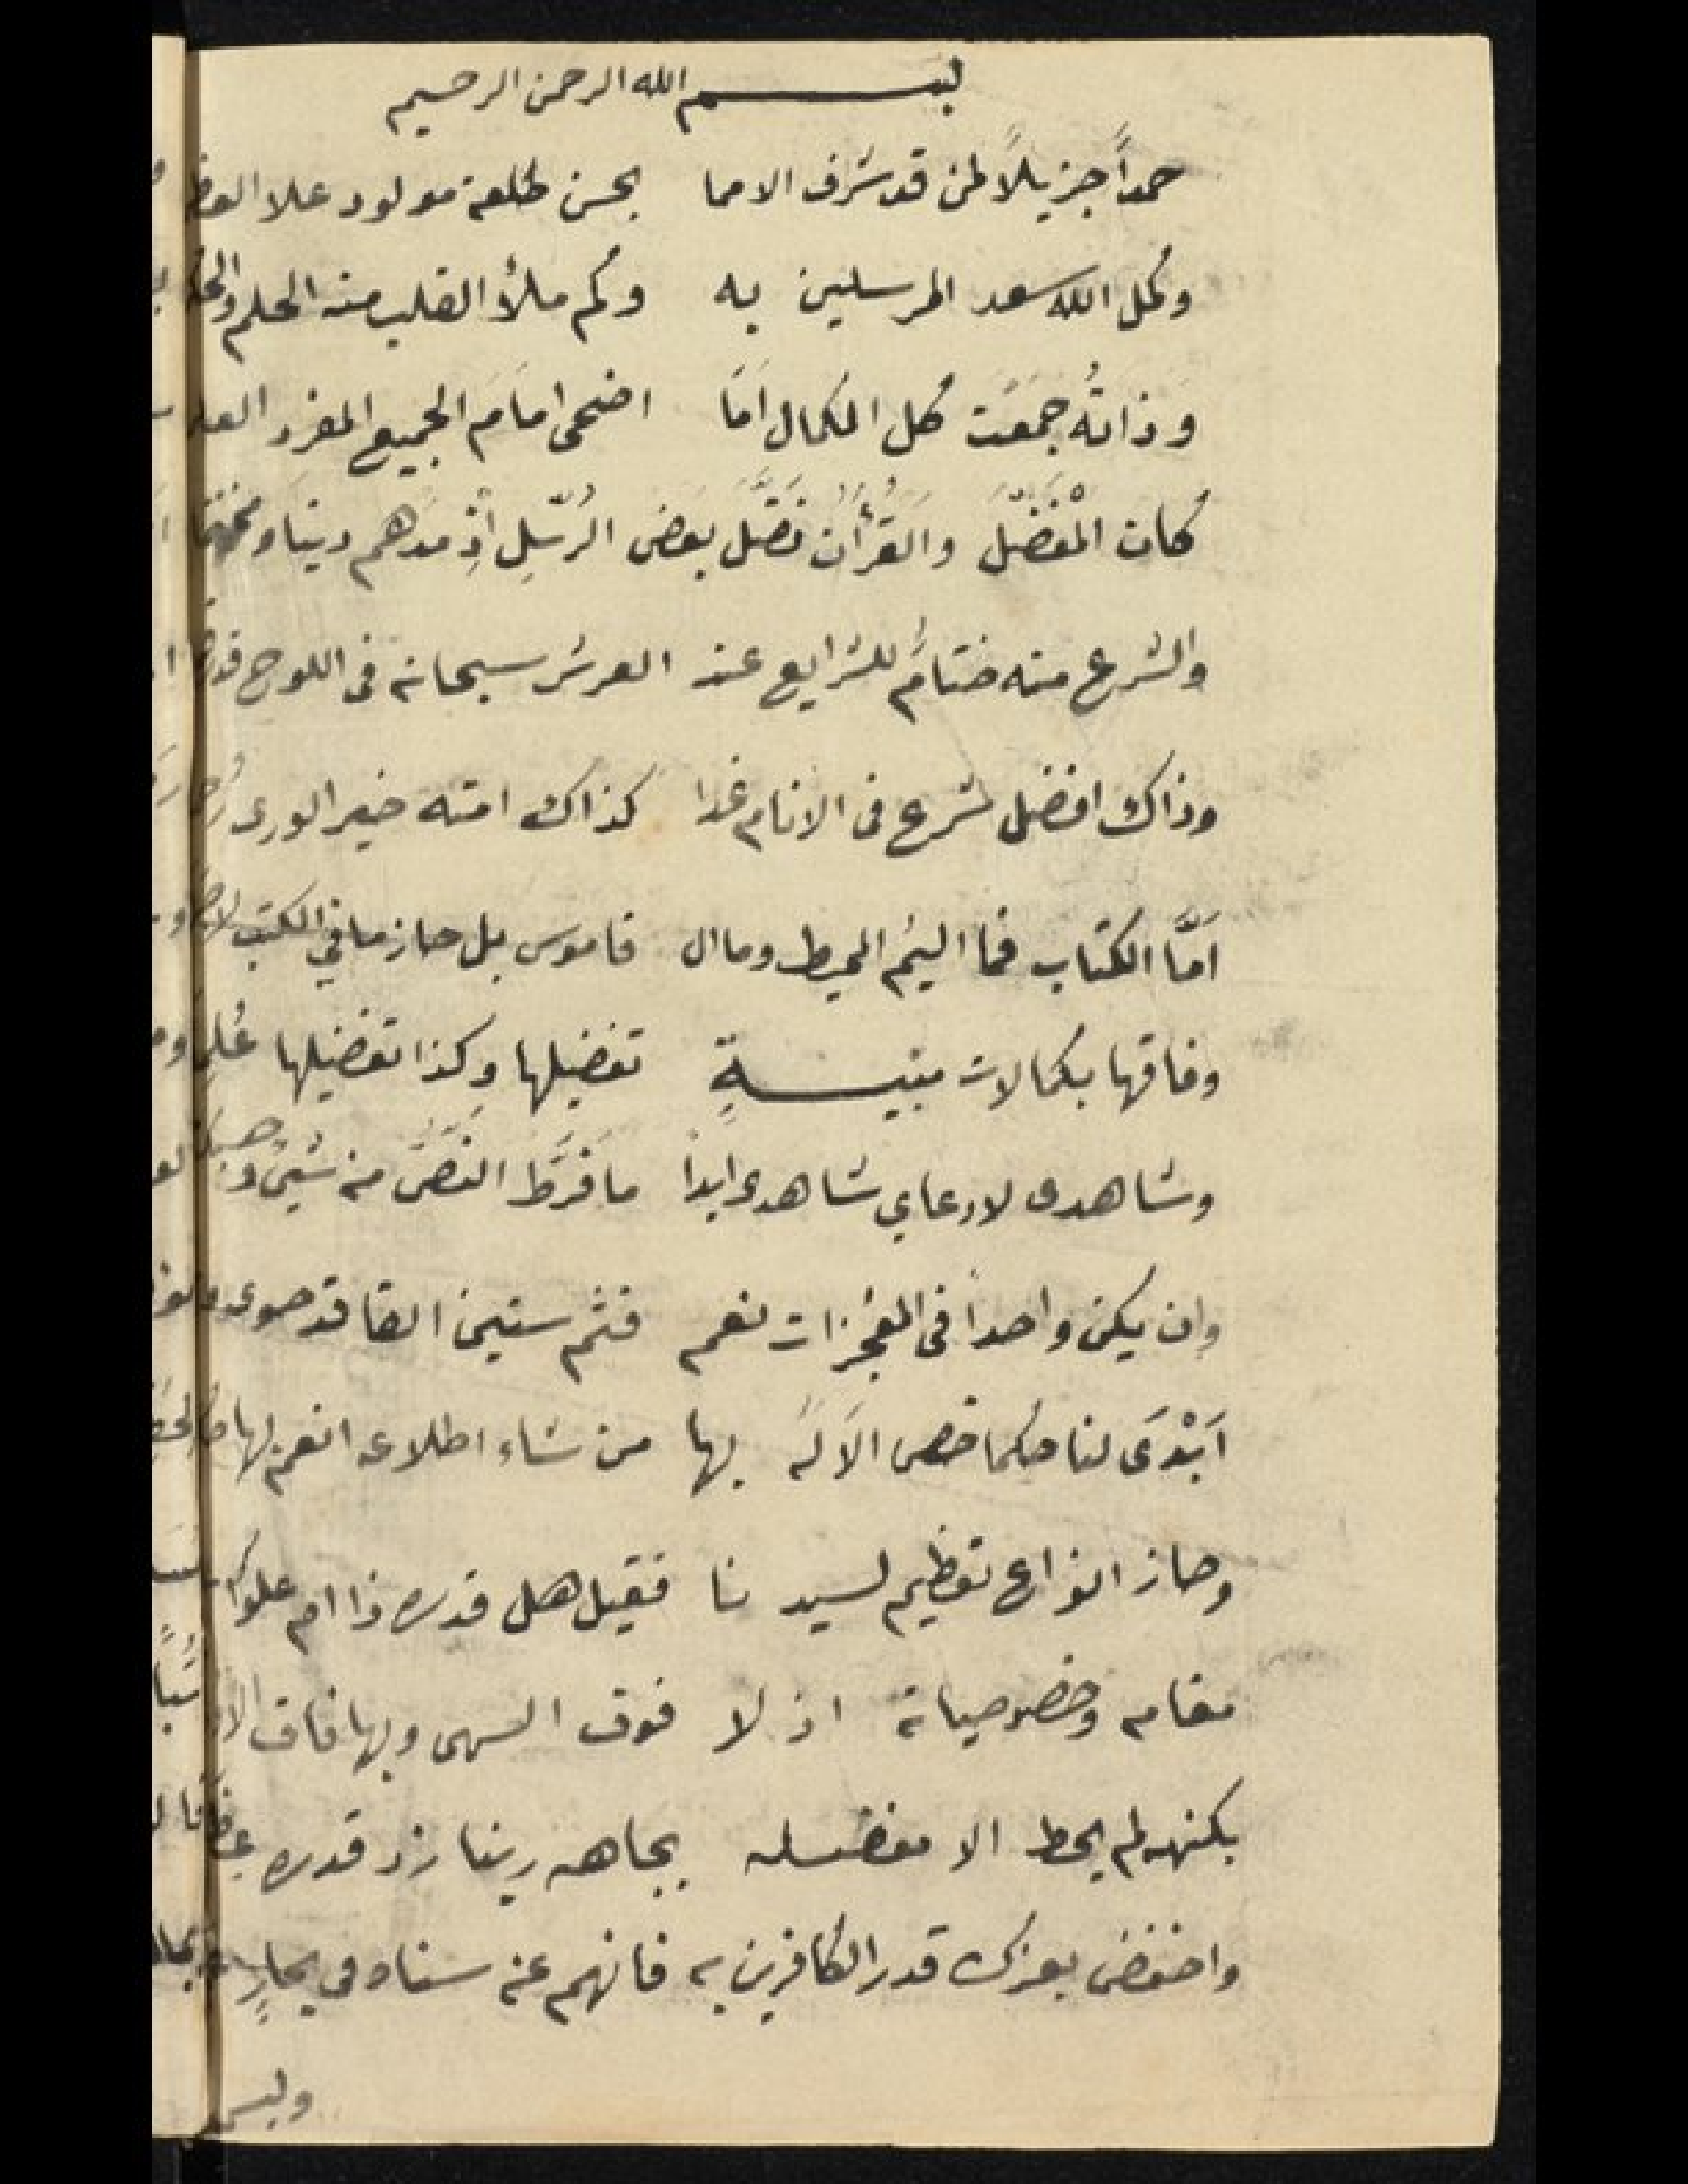 بسم الله الرحمن الرحيم
حمداً جزيلاً لمن قد شرف الامما بحسن طلعة مولود علا
وكل الله سعد المرسلين به وكم ملأ القلب منه الحلم
وذاتُه جمَعَت كل الكمال اَمَا اضحى امامَ الجميع المفرد
كان المْفَضَّلَ والقُرأَن فَضَّلَ بعَض الرُسّلِ اِذْ مدهم دينا
والشرع منه ختامٌ للشرايع عند العرش سبحانه فى اللوح
وذاك افضل شرع فى الانام غدا كذاك امته خير الورى
اَمَّا الكتاب فما اليَم المحيط وما ال قاموس بل حاز ما في الكتب
وفاقها بكمالات مبينةٍ تفضيلها وكذا تفضيلها
وشاهدى لادعاي شاهدى ابداً ما فَرَّطَ النَصُّ من شىء
وان يكن واحداً فى المعجزات نعم فثم ستين الفا قد
اَبْدَى لنا حكما خص الاَله بها من شاء اطلاعه انعم بها
وحاز انواع تعظيم لسيدنا فقيل هل قدره ذا ام علو
مقامه وخصوصياته اذ لا فوق السهى وبها فاق
بكنهه لم يحط الا مفضله بجاهه ربنا زد قدره
واخفض بعزك قدر الكافرين به فانهم عن سناه فى بحارٍ
وليس